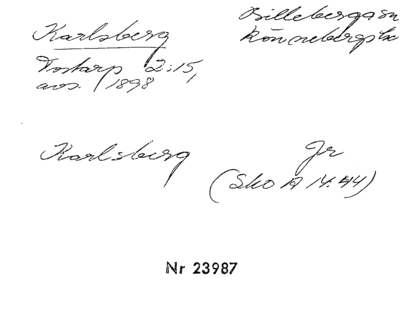 Karlsberg
Billebergasn
Rönnebergshd
Tostarp 2:15,
avs. 1898
Karlsberg
Jr
(Sko A 14:44)
Nr 23987